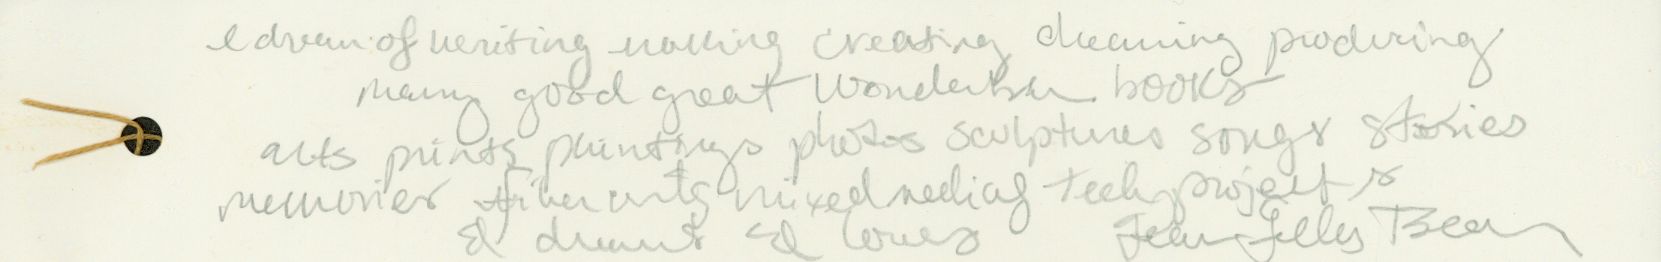 I dream of writing making creating dreaming producing
many good great wonderful books
arts prints paintings photos sculptures songs stories
memories fiber arts mixed media tech projects
& dreams & loves Jean Jelly Bean